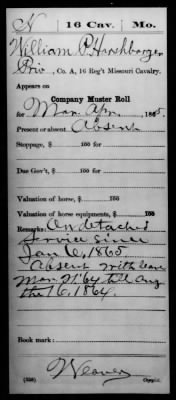 N 16 Cav. Mo.
William P. Harshbarger
Priv, Co. A, 16 Reg't Missouri Cavalry.
Appears on
Company Muster Roll
for Mar. Apr, 1865.
Present or absent Absent
Stoppage, $ 100 for
Due Gov't, $ 100 for
Valuation of horse, $ 100
Valuation of horse equipments, $ 100
Remarks: On detached
service since
Jan 6, 1865.
Absent with leave
Mar 21 '64 till Aug
the 16, 1864.
Book mark:
Weaver
(358) Copyist.